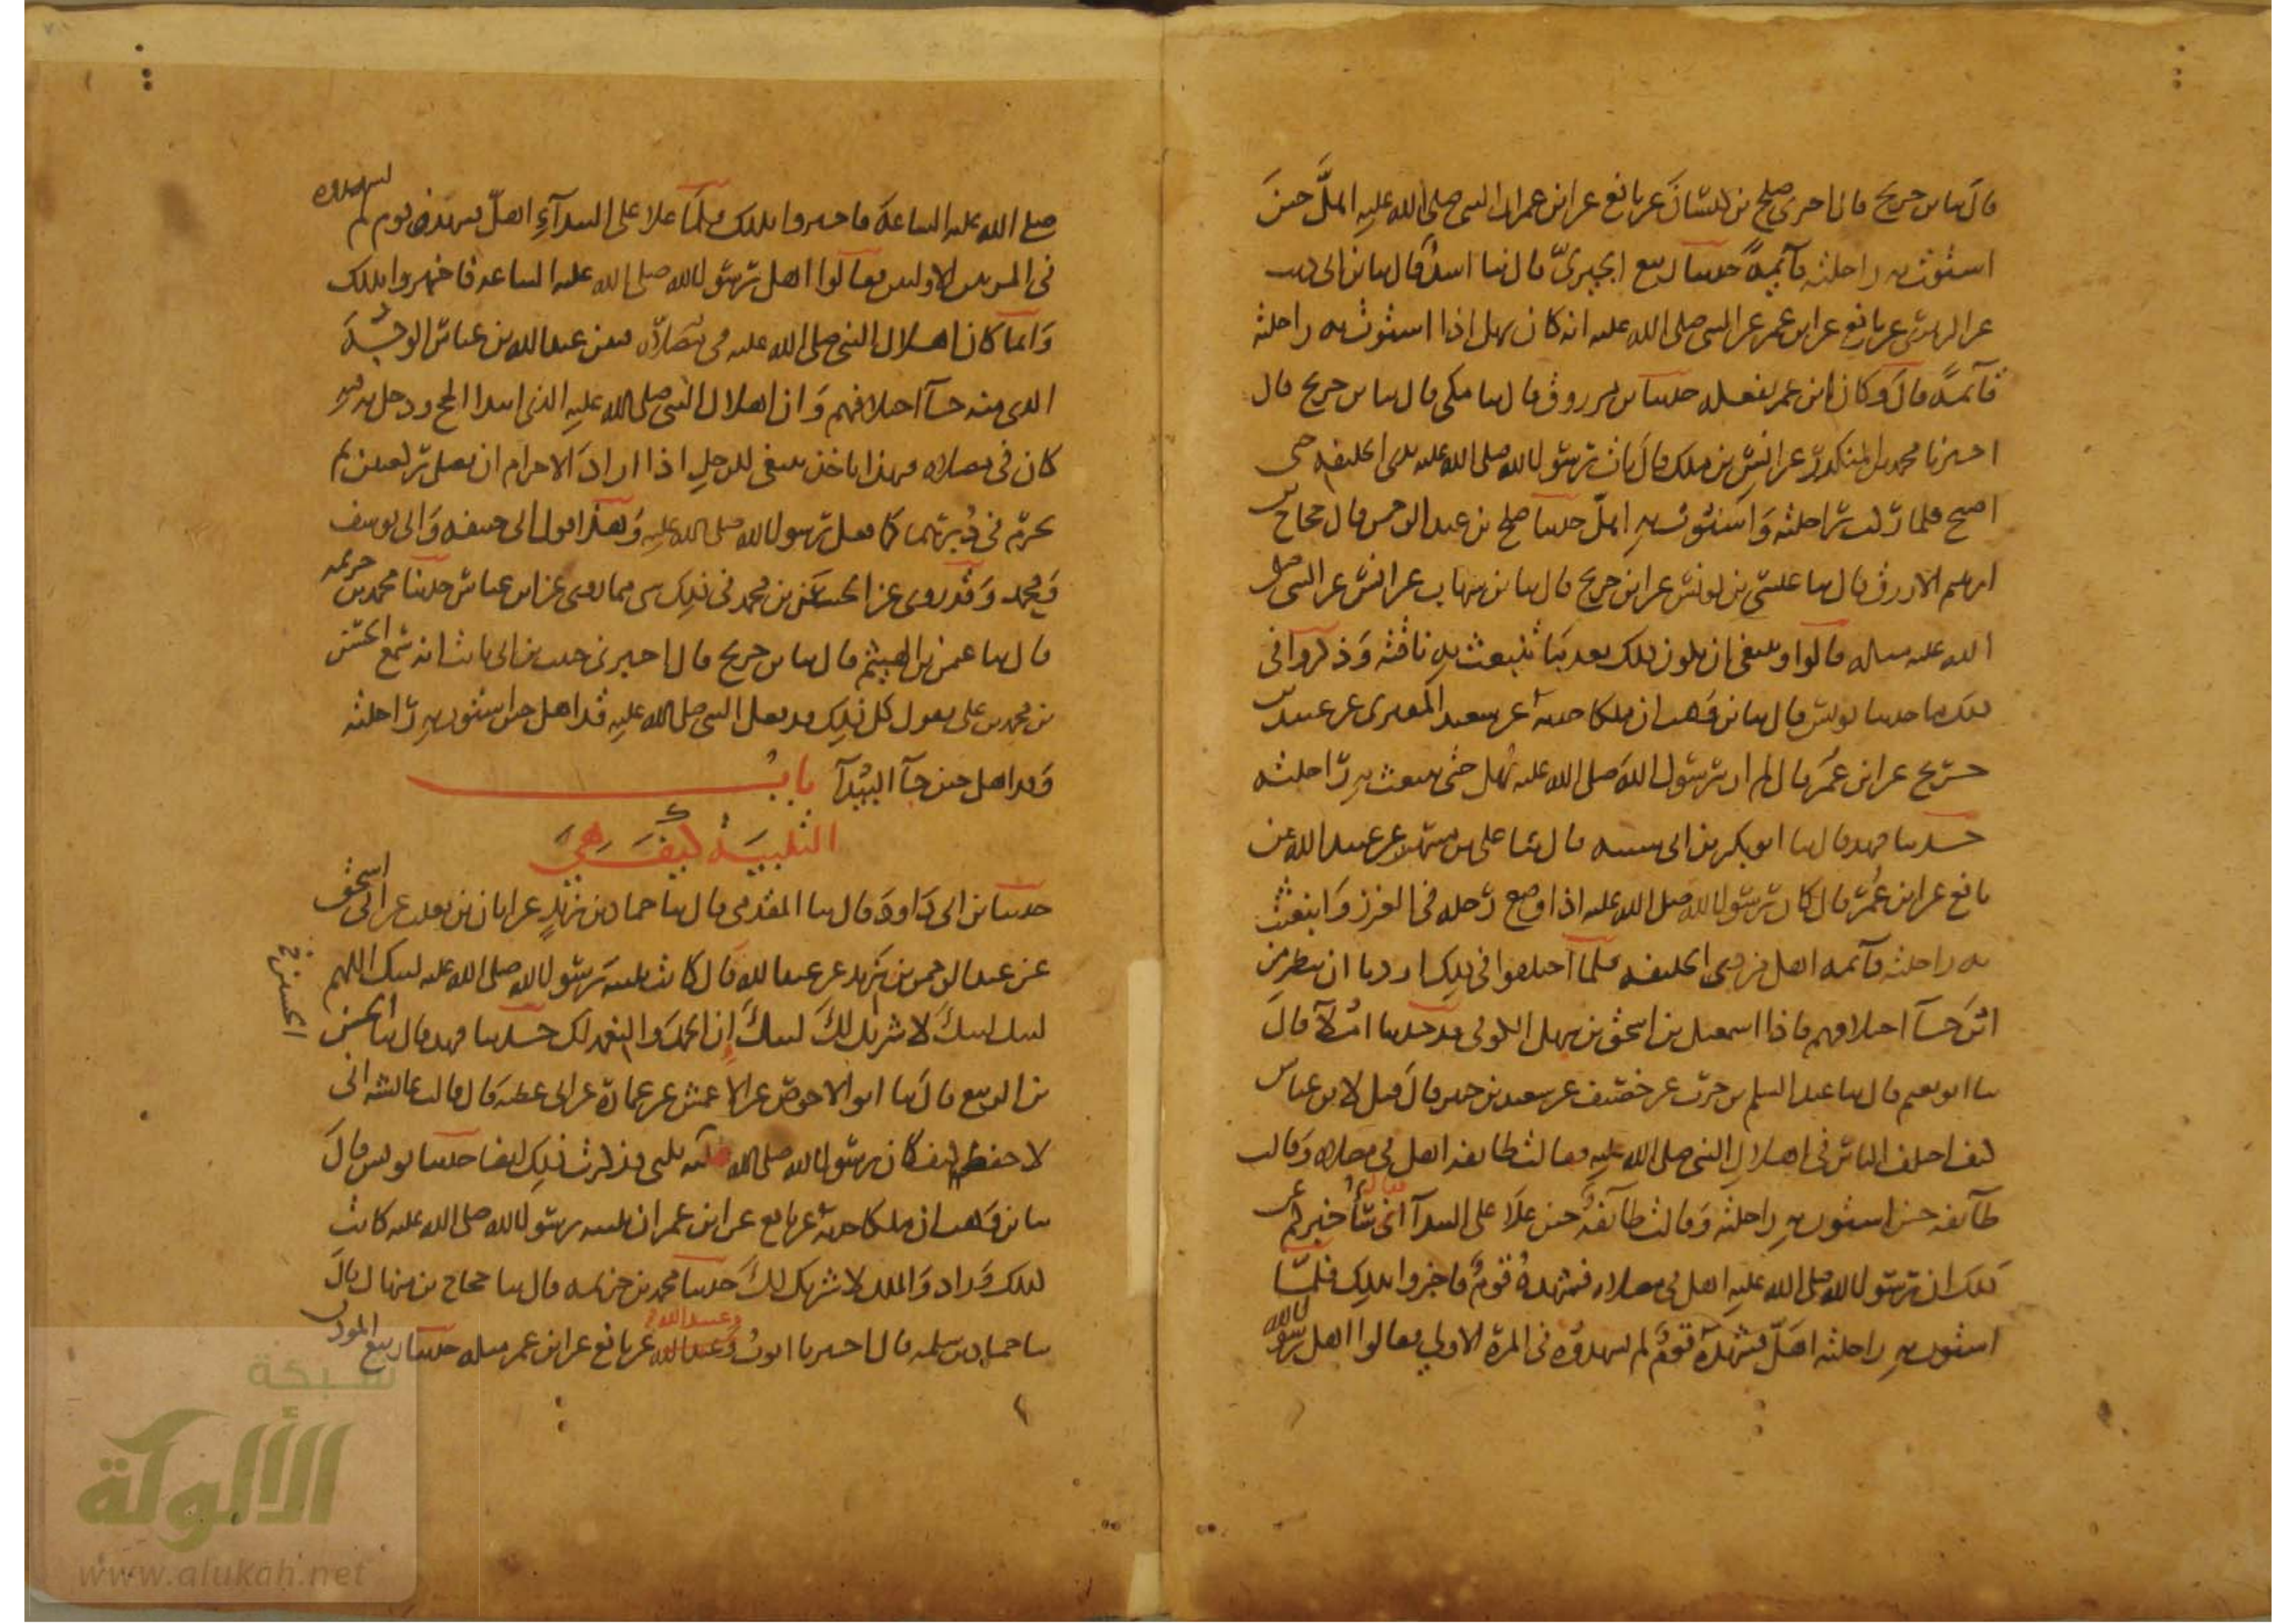 قال ثنا بن جريج قال اخبرني صلح بن كيسان عن نافع عن ابن عمر ان النبي صلى الله عليه اهلّ حين
استوت به راحلته قائمة حدثنا ربيع الجيزي قال ثنا اسد قال ثنا بن ابي ذيب
عن الزهري عن نافع عن ابن عمر عن النبي صلى الله عليه انه كان يهل اذا استوت به راحلته
قائمة قال وكان ابن عمر يفعله حدثنا بن مرزوق قال ثنا مكي قال ثنا بن جريج قال
اخبرنا محمد بن المنكدر عن انس بن ملك قال بات رسول الله صلى الله عليه بذي الحليفة حتى
اصبح فلما ركب راحلته واستوت به اهلّ حدثنا صلح بن عبد الرحمن قال حجاج بن
ابرهيم الازرق قال ثنا عيسى بن يونس عن ابن جريج قال ثنا بن شهاب عن انس عن النبي صلى
الله عليه مثله قالوا وينبغي ان يكون ذلك بعد ما تنبعث به ناقته وذكروا في
ذلك ما حدثنا يونس قال ثنا بن وهب ان ملكا حدثه عن سعيد المقبري عن عبيد بن
جريج عن ابن عمر قال لم ار رسول الله صلى الله عليه يهل حتى تنبعث به راحلته
حدثنا فهد قال ثنا ابو بكر بن ابي شيبه قال ثنا علي بن مسهر عن عبيد الله عن
نافع عن ابن عمر قال كان رسول الله صلى الله عليه اذا وضع رجله في الغرز وانبعثت
به راحلته قائمه اهل من ذي الحليفه فلما اختلفوا في ذلك اردنا ان ننظر من
اين جآ اختلافهم فاذا اسمعيل بن اسحق بن سهل الكوفي قد حدثنا املآ قال
ثنا ابو نعيم قال ثنا عبد السلم بن حرب عن خصيف عن سعيد بن جبير قال قيل لابن عباس
كيف اختلف الناس في اهلال النبي صلى الله عليه فقالت طائفه اهل في مصلاه وقالت
طآئفه حين استوت به راحلته وقالت طآئفة حين علا على البيدآ فقال اني سأخبركم عن
ذلك ان رسول الله صلى الله عليه اهل في مصلاه فشهده قوم فاخبروا بذلك فلما
استوت به راحلته اهلّ فشهده قوم لم يشهدوه في المرة الاولى فقالوا اهل رسول الله
صلى الله عليه الساعة فاخبروا بذلك فلما علا على البيدآء اهلّ فشهده قوم لم يشهدوه
في المرتين الاوليين فقالوا اهل رسول الله صلى الله عليه الساعه فاخبروا بذلك
وانما كان اهلال النبي صلى الله عليه في مصلاه فبين عبد الله بن عباس الوجه
الذي منه جآ اختلافهم وان اهلال النبي صلى الله عليه الذي ابتدا الحج ودخل به فيه
كان في مصلاه فبهذا ناخذ ينبغي للرجل اذا اراد الاحرام ان يصلي ركعتين ثم
يحرم في دبرهما كما فعل رسول الله صلى الله عليه وهذا قول ابي حنيفه وابي يوسف
ومحمد وقد روى عن الحسن بن محمد في ذلك شي مما روي عن ابن عباس حدثنا محمد بن خزيمه
قال ثنا عثمن بن الهيثم قال ثنا بن جريج قال اخبرني حبيب بن ابي ثابت انه سمع الحسن
بن محمد بن علي يقول كل ذلك قد فعل النبي صلى الله عليه قد اهل حين استوت به راحلته
وقد اهل حين جآ البيدآ باب
التلبية كيف هي
حدثنا بن ابي داود قال ثنا المقدمي قال ثنا حماد بن زيد عن ابان بن تغلب عن ابي اسحق
عن عبد الرحمن بن يزيد عن عبد الله قال كانت تلبية رسول الله صلى الله عليه لبيك اللهم
لبيك لبيك لا شريك لك لبيك ان الحمد والنعمه لك حدثنا فهد قال ثنا الحسن
بن الربيع قال ثنا ابو الاحوص عن الاعمش عن عمارة عن ابي عطيه قال قالت عائشه اني
لاحفظ كيف كان رسول الله صلى الله عليه يلبي فذكرت ذلك ايضا حدثنا يونس قال
ثنا بن وهب ان ملكا حدثه عن نافع عن ابن عمر ان تلبيه رسول الله صلى الله عليه كانت
كذلك وزاد والملك لا شريك لك حدثنا محمد بن خزيمه قال ثنا حجاج بن منهال قال
ثنا حماد بن سلمه قال اخبرنا ايوب وعبيد الله عن نافع عن ابن عمر مثله حدثنا ربيع المؤذن
الحسن
وعبيد الله
شبكة
الألوكة
www.alukah.net